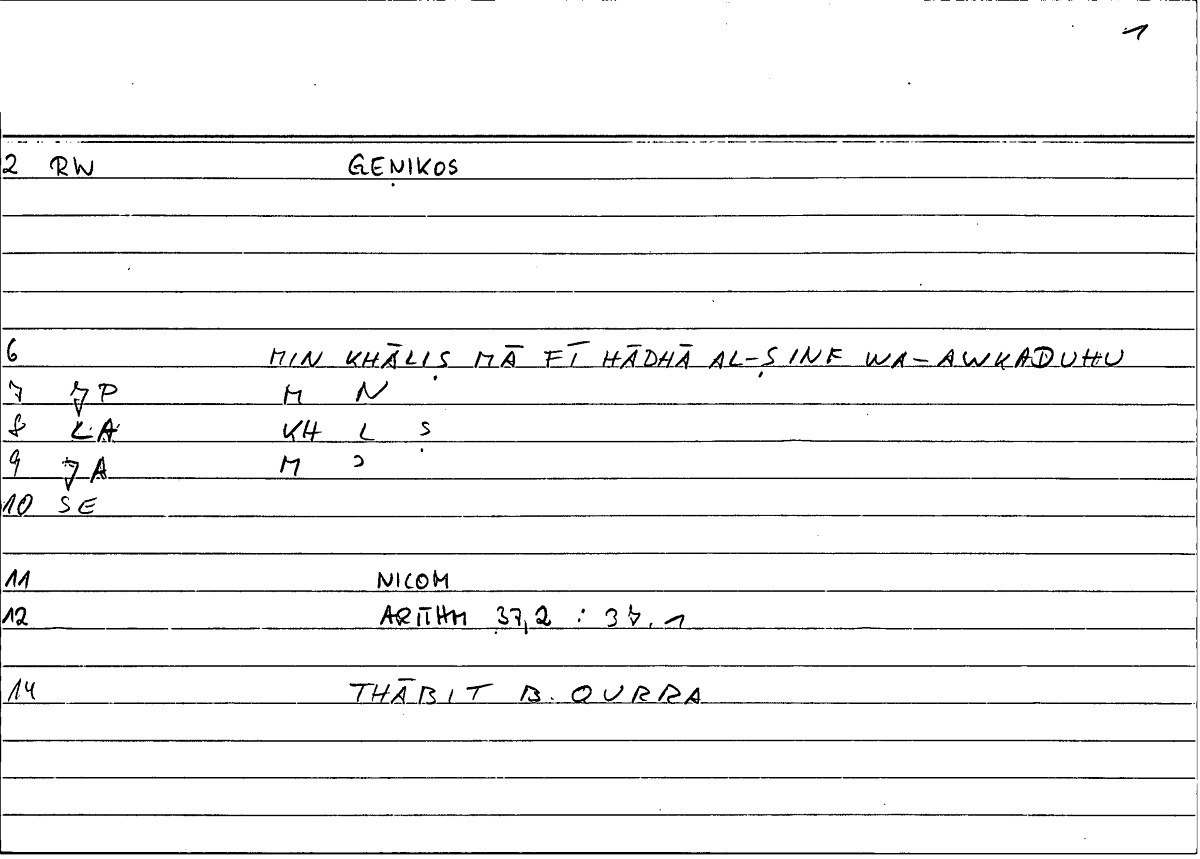 1
2 RW GEṆIKOS
6 MIN KHĀLIṢ MĀ FĪ HĀDHĀ AL-ṢINF WA-AWKADUHU
7 JP M N
8 LA KH L Ṣ
9 JA M ʾ
10 SE
11 NICOM
12 ARITHM 37,2 : 37.1
14 THĀBIT B. QURRA